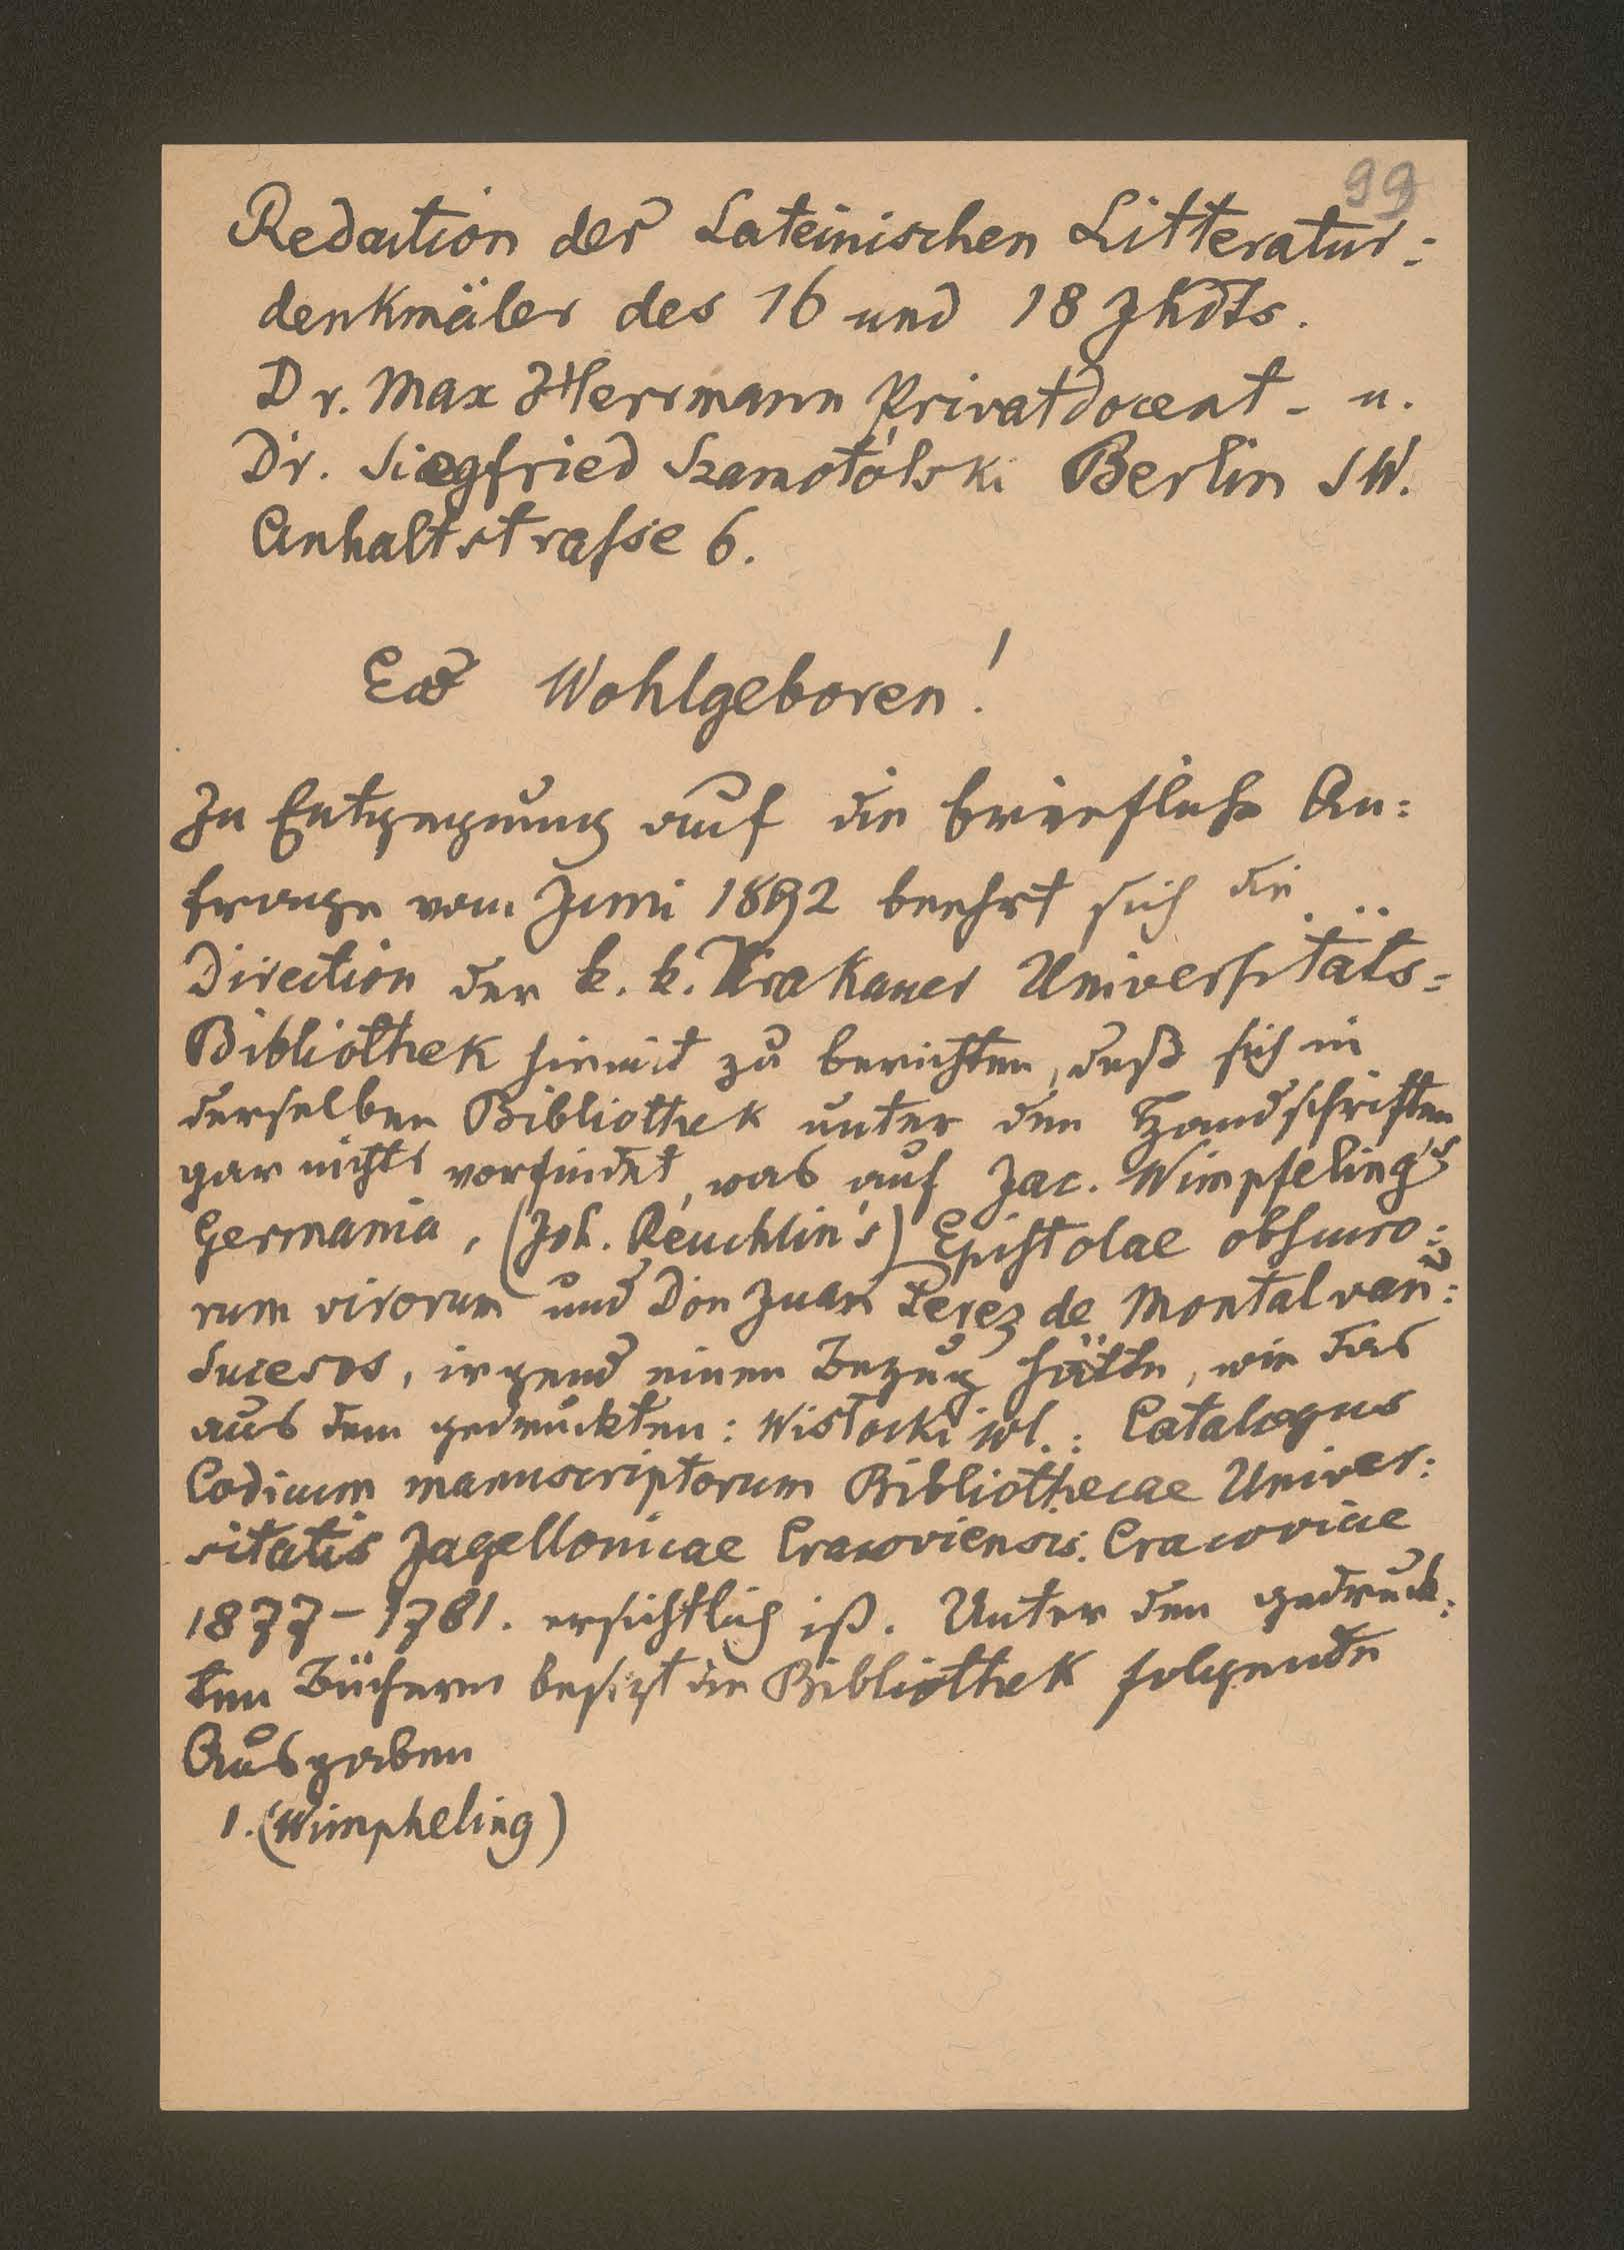 99
Redaction der Lateinischen Litteratur:
denkmäler des 16 und 18 Jhdts.
Dr. Max Herrmann Privatdocent - u.
Dr. Siegfried Szamotólski Berlin SW.
Anhaltstrasse 6.
Ew Wohlgeboren!
In Entgegnung auf die briefliche An:
frage vom Juni 1892 beehrt sich die
Direction der k. k. Krakauer Universitäts=
Bibliothek hiemit zu berichten, daß sich in
derselben Bibliothek unter den Handschriften
gar nichts vorfindet, was auf Jac. Wimpfeling's
Germania, (Joh. Reuchlin's) Epistolae obscuro:
rum virorum und Don Juan Perez de Montalvan:
Sucesos, irgend einen Bezug hätte, wie das
aus dem gedruckten: Wisłocki Wl.: Catalogus
Codicum manuscriptorum Bibliothecae Univer:
sitatis Jagellonicae Cracoviensis. Cracoviae
1877-1781. ersichtlich ist. Unter den gedruck:
ten Büchern besizt die Bibliothek folgende
Ausgaben
1. (Wimpheling)